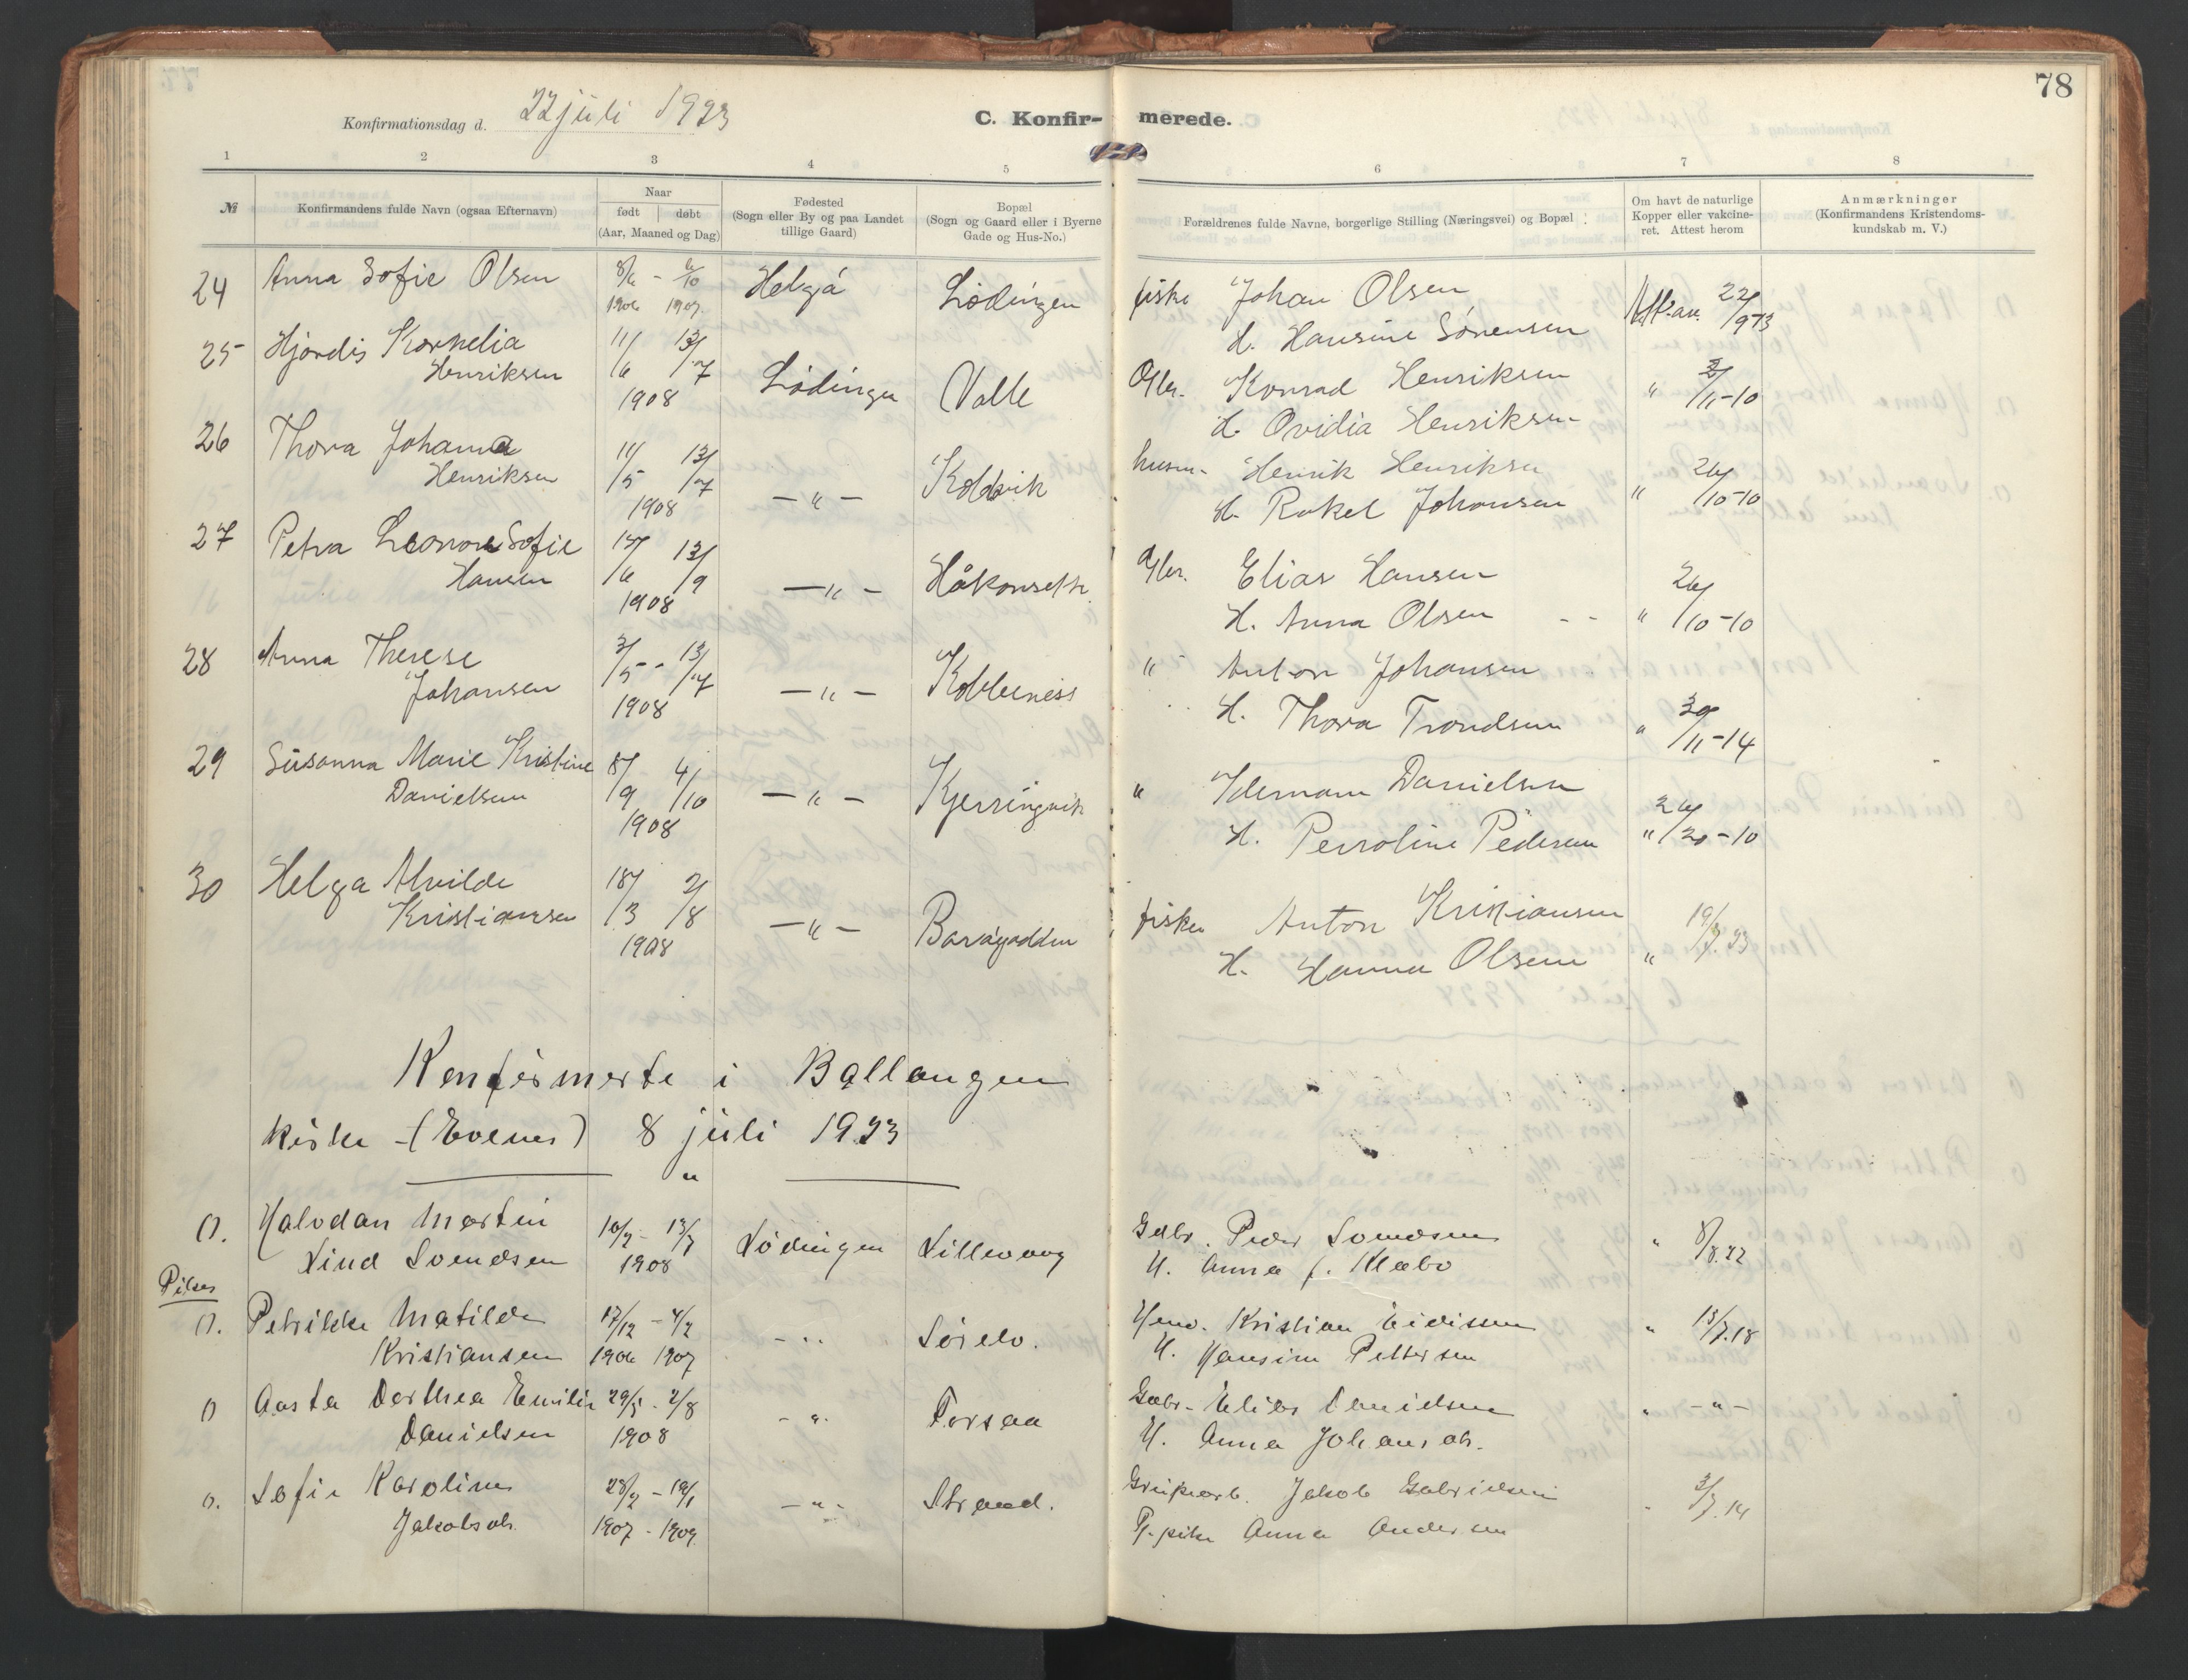 78
Konfirmationsdag d. 22 juli 1923
C. Konfir- merede.
1 2 3 4 5 6 7 8
№
Konfirmandens fulde Navn (ogsaa Efternavn)
Naar
født | døbt
(Aar, Maaned og Dag)
Fødested
(Sogn eller By og paa Landet
tillige Gaard)
Bopæl
(Sogn og Gaard eller i Byerne
Gade og Hus-No.)
Forældrenes fulde Navne, borgerlige Stilling (Næringsvei) og Bopæl
Om havt de naturlige
Kopper eller vakcine-
ret. Attest herom
Anmærkninger
(Konfirmandens Kristendoms-
kundskab m. V.)
24 Anna Sofie Olsen 8/6 - 6/10 Helgå Lødingen fiske Johan Olsen 22/9 23
1906 1907. H. Hansine Sörensen
25 Hjördis Kornelia 11/6 13/7 Lödingen Valle Gbr. Konrad Henriksen " 3/11-10
Henriksen 1908 H. Ovidia Henriksen
26 Thora Johanna 11/5 13/7 -"- Koldvik husm. Henrik Henriksen " 26/10-10
Henriksen 1908 H. Rakel Johansen
27 Petra Leonore Sofie 17/6 13/9 -"- Håkonseth Gbr. Elias Hansen " 26/10-10
Hansen 1908 H. Anna Olsen
28 Anna Therese 3/5 - 13/7 -"- Kobberness " Anton Johansen
Johansen 1908 H. Thora Trondsen " 30/11-14
29 Susanna Marie Kristine 8/9 4/10 -"- Kjerringvik " Idemann Danielsen
Danielsen 1908 H. Perroline Pedersen " 26/20-10
30 Helga Alvilde 18/3 2/8 -"- Barøygadden fisker Anton Kristiansen 19/7.23
Kristiansen 1908 H. Hanna Olsen "
Konfirmerte i Ballangen
kirke - (Evenes) 8 juli 1923
"
0. Halvdan Martin 10/2 - 13/7 Lödingen Lillevaag Gdbr. Peder Svendsen " 8/8.22
Lind Svendsen 1908 H. Anna f. Klæbo
Piker
0. Petrikke Matilde 17/12 - 4/2 -"- Sörelv. Hmd. Kristian Eidissen " 13/7.18
Kristiansen 1906 1907 H. Hansine Pettersen
0 Aasta Dorthea Emilie 29/5 - 2/8 -"- Forsaa Gdbr- Elias Danielsen " -"-
Danielsen 1908 H. Anna Johansdt.
0. Sofie Karoline 28/2 - 19/1 -"- Strand. Grubearb. Jakob Gabrielsen " 3/7.14
Jakobsdt. 1907 - 1909. P. pike Anna Andersen